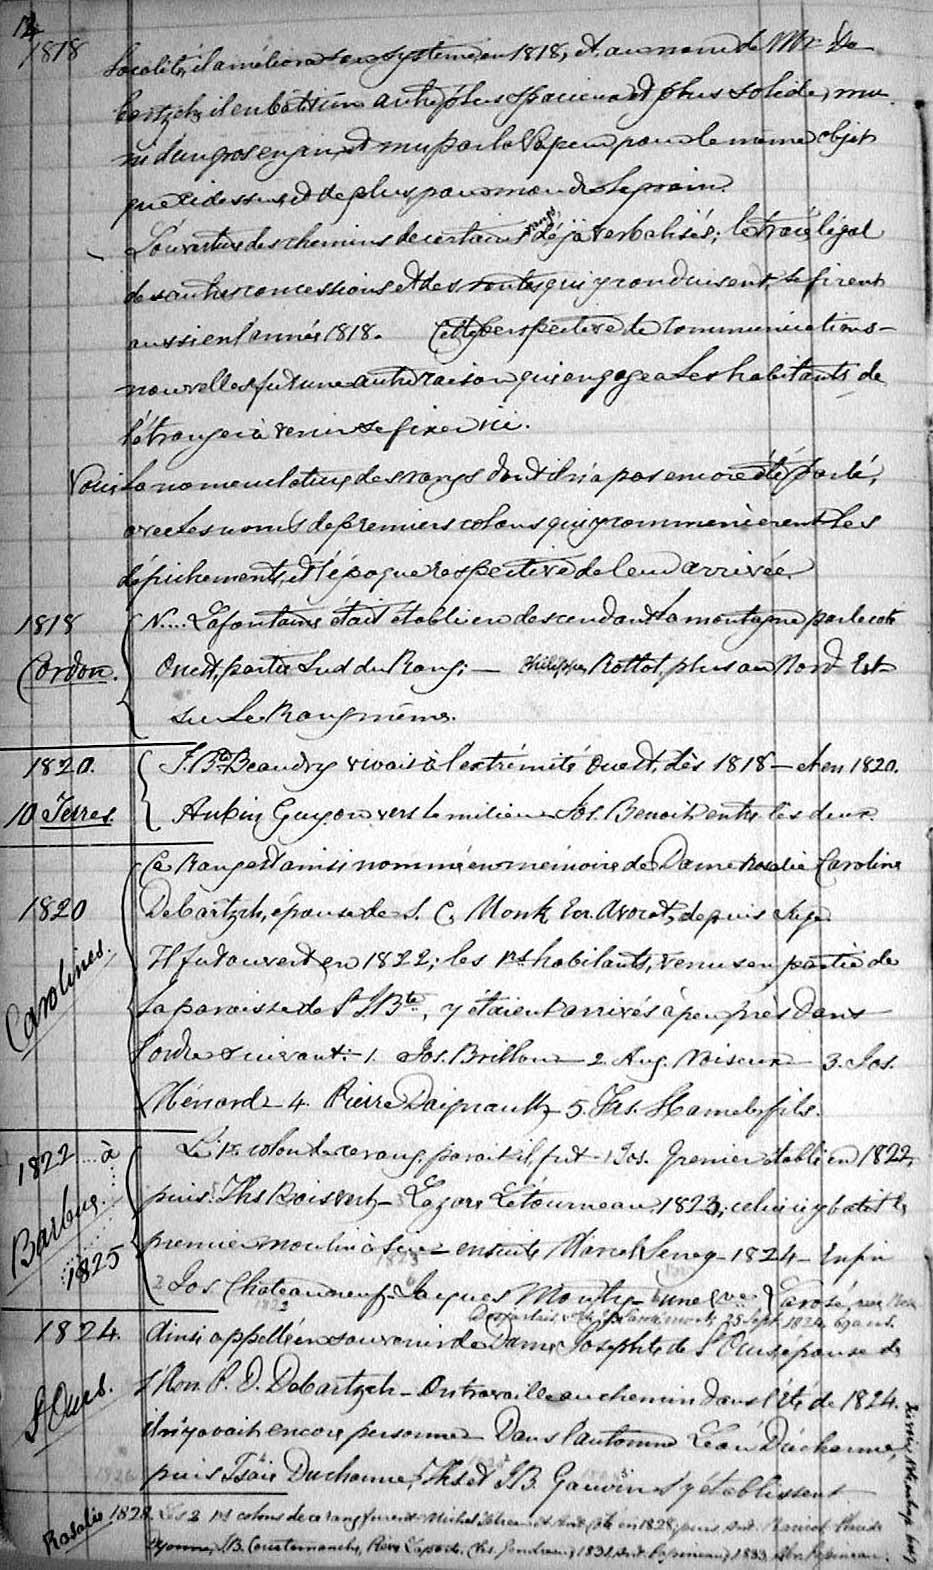 12
1818
localité, il améliora son système, en 1818, et, au nom de Mr De
bartzch, il en bâtit un autre plus spacieux et plus solide, mu
ni d'un gros engin, et mu par la vapeur pour le même objet
que ci dessus, et de plus, pour moudre le grain.
L'ouverture des chemins de certains rangs déjà verbalisés; le tracé légal
des autres concessions et des routes qui y conduisent, se firent
aussi en l'année 1818. Cette perspective de communications
nouvelles fut une autre raison qui engagea les habitants de
l'étranger à venir se fixer ici.
Voici la nomenclature des rangs dont il n'a pas encore été parlé,
avec les noms de premiers colons qui y commencèrent les
défrichements, et l'époque respective de leur arrivée.
1818
Cordon.
N.... Lafontaine était établi en descendant la montagne par le coté
Ouest, partie Sud du Rang; — Philippe Rottot, plus au Nord-Est
sur le Rang même.
1820.
10 Terres.
J. Bte Beaudry vivait à l'extrémité Ouest, dès 1818 — et en 1820.
Aubin Guyon vers le milieu Jos. Benoit entre les deux.
1820
Carolines.
Ce Rang est ainsi nommé en mémoire de Dame Rosalie Caroline
Debartzch, épouse de S. C. Monk Ecr Avocat, depuis Juge
Il fut ouvert en 1822; les 1rs habitants, venus en partie de
la paroisse de St J Bte, y étaient arrivés à peu près dans
l'ordre suivant: 1. Jos. Brillon — 2. Aug. Noiseux — 3. Jos.
Ménard — 4. Pierre Daignault — 5. Frs. Hamel fils.
1822 à
Barbue.
1825
Le 1r colon de ce rang, parait-il, fut Jos. Grenier établi en 1822,
puis Ths Boisvert — Lazare Létourneau 1823, celui-ci y batit le
premier moulin à scie — ensuite Marcel 1824 — Enfin
2 Jos. Chateauneuf — Jacques Monty — une Ve Larose,
25 Sept. 1824, 69 ans.
1824.
St Ours.
Ainsi appellé en souvenir de Dame Josephte de St Ours, épouse de
l'Hon. P. D. Debartzch — On travaille au chemin dans l'été de 1824.
il n'y avait encore personne Dans l'automne Léon Ducharme,
puis Isaïe Ducharme, Ths et J B. Gauvin s'y établissent
Rosalie 1828. Les 2 1rs colons de ce rang furent Michel et en 1828, puis
J B. Courtemanche, Pierre Laporte, Chs. Gendreau, 1831, Ant. Papineau, 1833, Abr. Papineau.